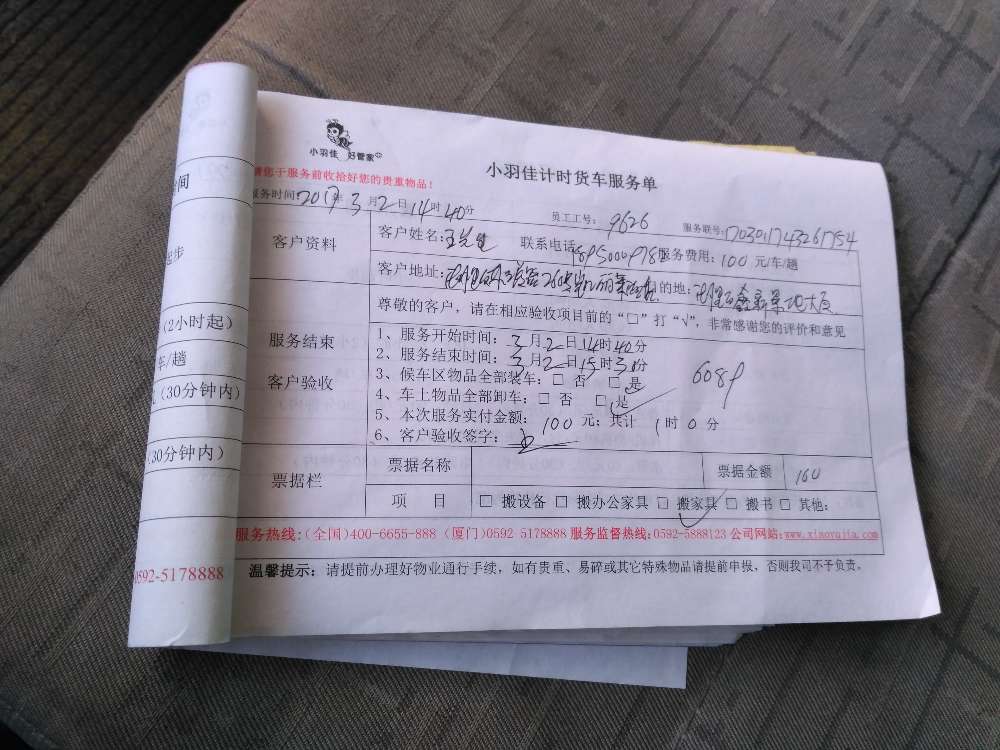 小羽佳 好管家
小羽佳计时货车服务单
请您于服务前收拾好您的贵重物品！
服务时间:2017年3月2日14时40分 员工工号: 9626 服务联号:170301743261754
客户资料
客户姓名:王先生 联系电话 服务费用: 100 元/车/趟
客户地址: 目的地:
尊敬的客户，请在相应验收项目前的“□”打“√”，非常感谢您的评价和意见
服务结束
客户验收
1、服务开始时间: 3月2日14时40分
2、服务结束时间: 3月2日15时30分
3、候车区物品全部装车: □ 否 □ 是
4、车上物品全部卸车: □ 否 □ 是
5、本次服务实付金额: 100 元; 共计 1时0分
6、客户验收签字:
票据栏
票据名称 票据金额 100
项 目 □ 搬设备 □ 搬办公家具 □ 搬家具 □ 搬书 □ 其他:
服务热线:(全国)400-6655-888 (厦门)0592 5178888 服务监督热线:0592-5888123 公司网站:www.xiaoyujia.com
温馨提示: 请提前办理好物业通行手续，如有贵重、易碎或其它特殊物品请提前申报，否则我司不予负责。
(2小时起)
车/趟
(30分钟内)
30分钟内)
0592-5178888